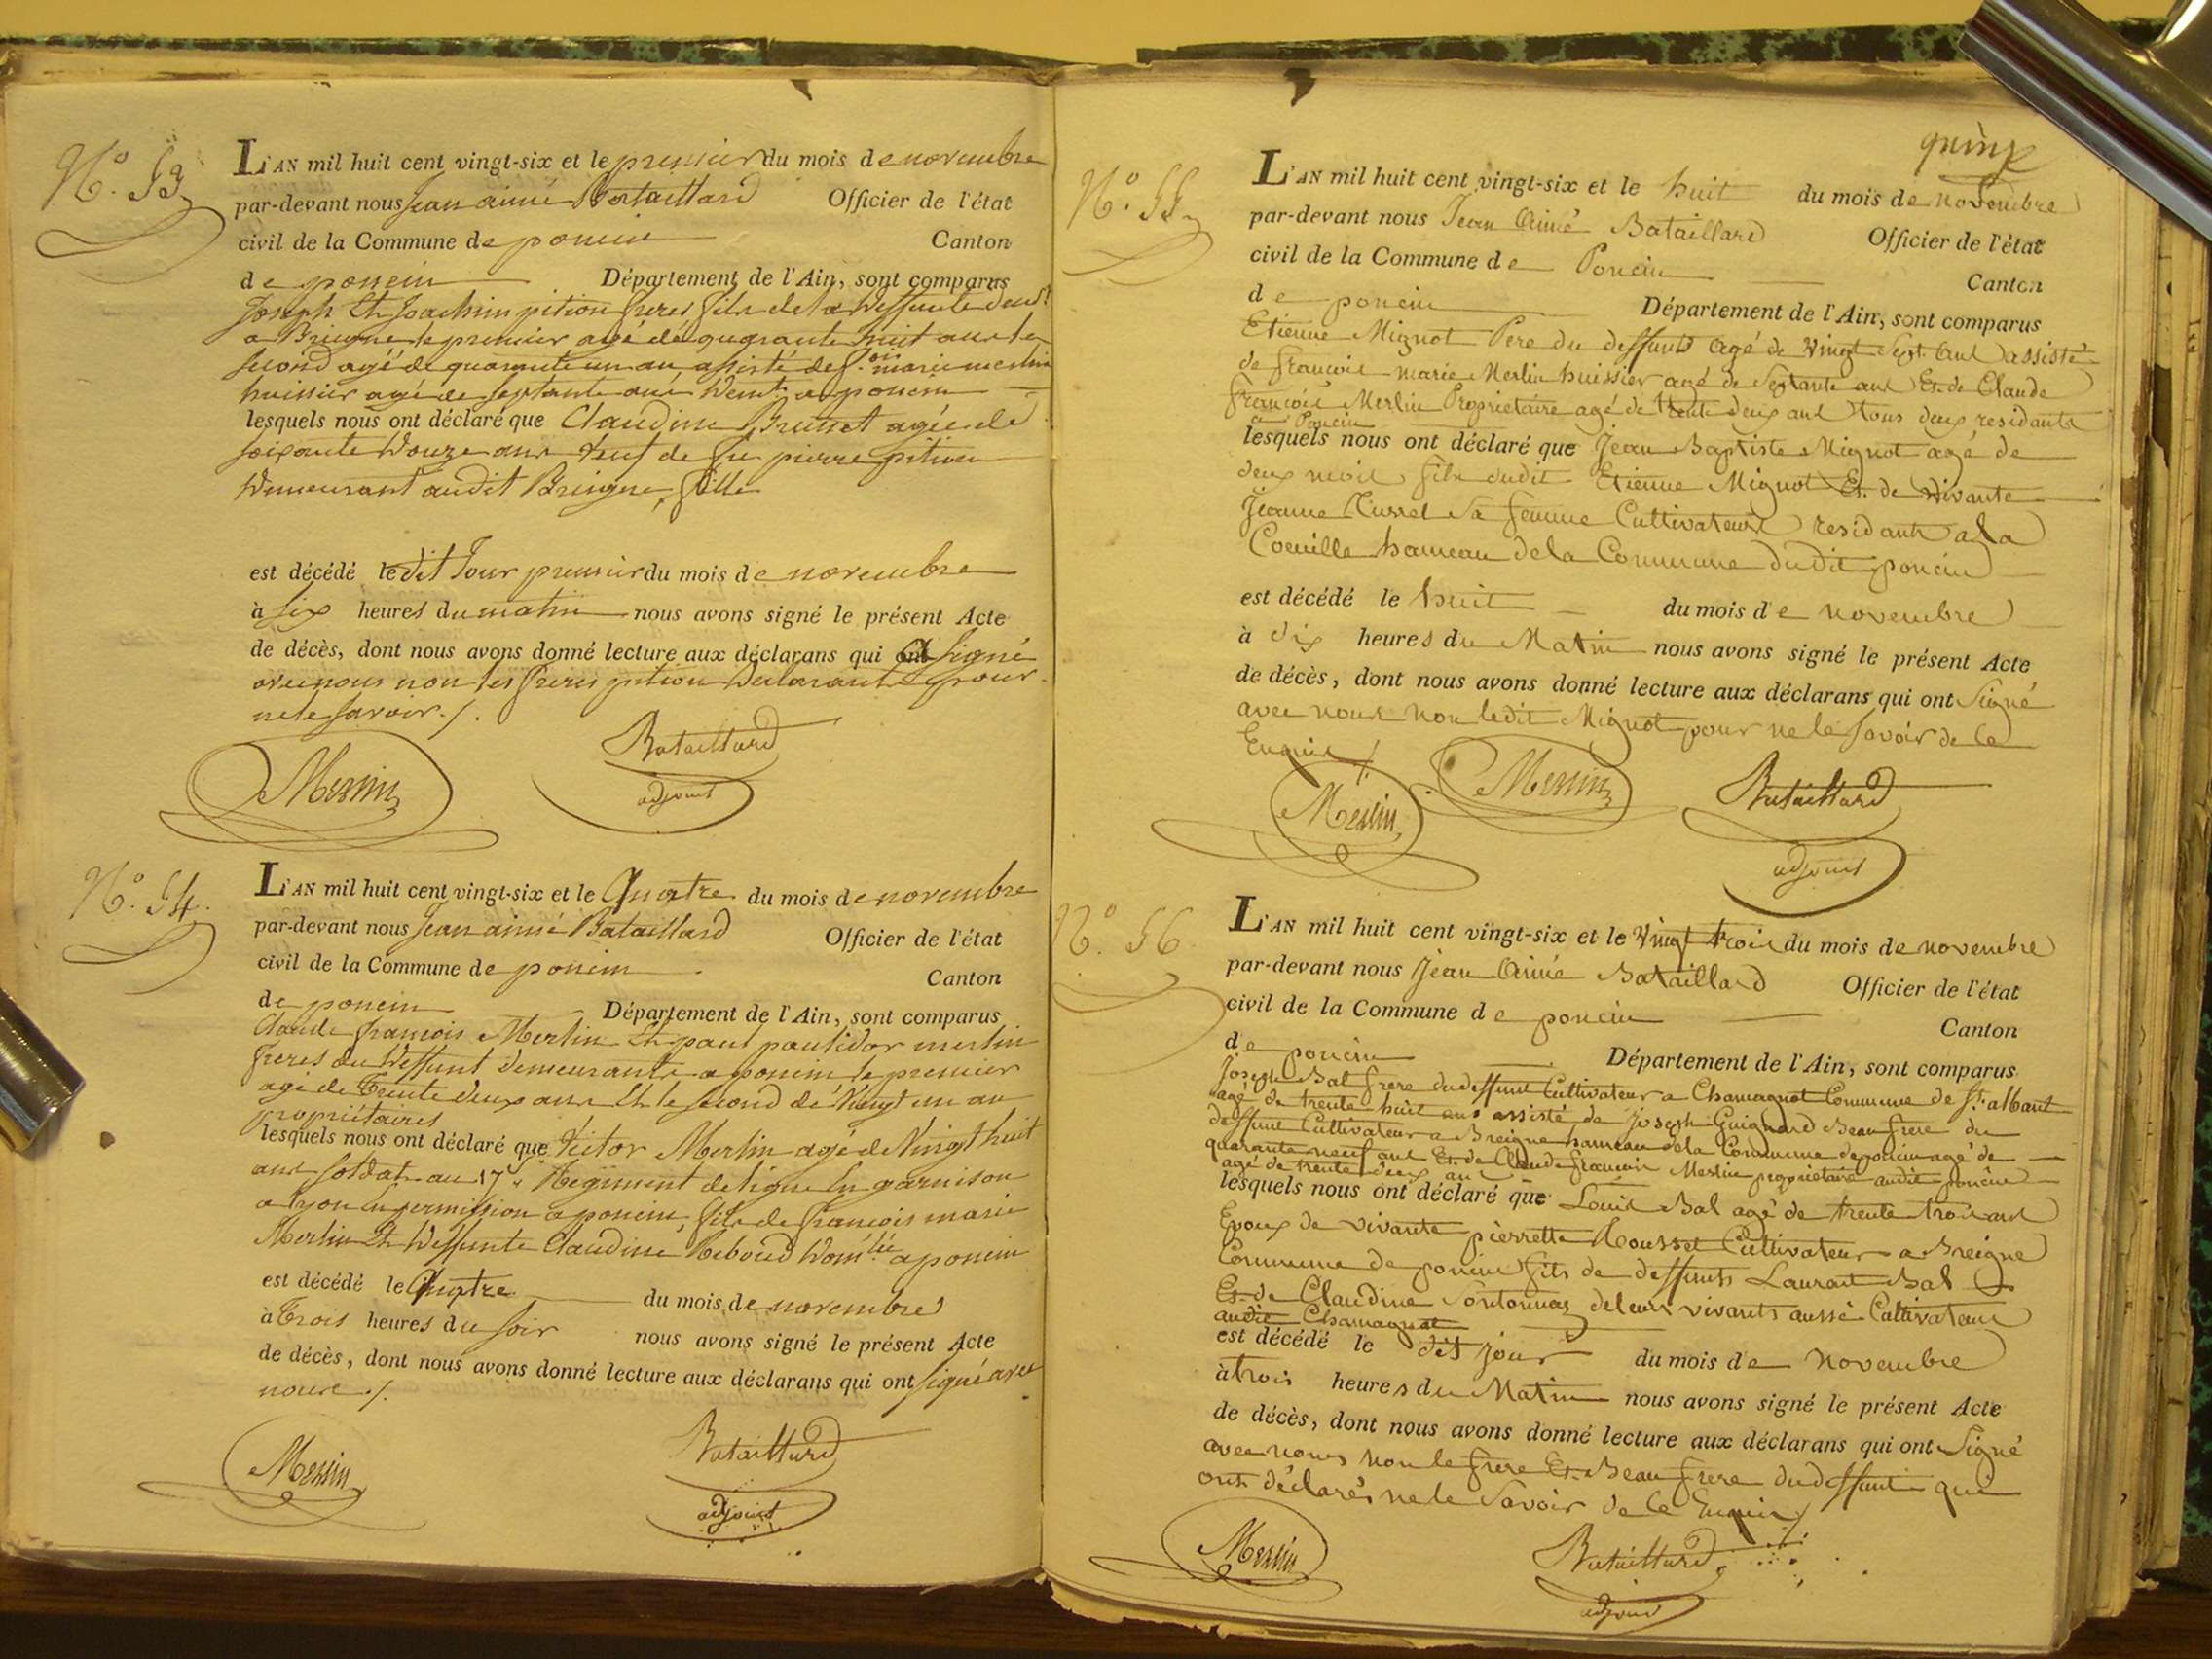 N.º 53
L'AN mil huit cent vingt-six et le premier du mois de novembre
par-devant nous Jean aimé Bataillard Officier de l'état
civil de la Commune de poncin Canton
de poncin Département de l'Ain, sont comparus
Joseph Et Joachim pition freres fils de la deffunte
a Breigne le premier agé de quarante huit ans le
second agé de quarante un an assisté de f.ois marie merlin
huissier agé de septante ans a poncin
lesquels nous ont déclaré que Claudine Brunet agée de
soixante douze ans veuf de feu pierre pition
demeurant audit Breigne, fille
est décédé le dit Jour premier du mois de novembre
à six heures du matin nous avons signé le présent Acte
de décès, dont nous avons donné lecture aux déclarans qui ont signé
avec nous non les freres pition declarants pour
ne le savoir ./.
Merlin Bataillard
adjoint
N.º 54.
L'AN mil huit cent vingt-six et le Quatre du mois de novembre
par-devant nous Jean aimé Bataillard Officier de l'état
civil de la Commune de poncin Canton
de poncin Département de l'Ain, sont comparus
Claude françois Merlin Et paul merlin
freres du deffunt demeurants a poncin le premier
agé de Trente deux ans Et le second de Vingt un an
propriétaires
lesquels nous ont déclaré que Victor Merlin agé de Vingt huit
ans soldat au 17e Regiment de ligne En garnison
a Lyon En permission a poncin, fils de françois marie
Merlin Et deffunte Claudine Reboud a poncin
est décédé le Quatre du mois de novembre
à Trois heures du soir nous avons signé le présent Acte
de décès, dont nous avons donné lecture aux déclarans qui ont signé avec
nous ./.
Merlin Bataillard
adjoint
quinze
N.º 55
L'AN mil huit cent vingt-six et le huit du mois de novembre
par-devant nous Jean Aimé Bataillard Officier de l'état
civil de la Commune de Poncin Canton
de poncin Département de l'Ain, sont comparus
Etienne Mignot Pere du deffunt agé de vingt sept ans assisté
de francois marie Merlin huissier agé de Septante ans Et de Claude
françois Merlin Propriétaire agé de trente deux ans tous deux residants
a Poncin
lesquels nous ont déclaré que Jean Baptiste Mignot agé de
deux mois fils dudit Etienne Mignot Et de vivante
Jeanne sa femme Cultivateurs residants a la
hameau de la Commune dudit poncin
est décédé le huit du mois de novembre
à dix heures du Matin nous avons signé le présent Acte
de décès, dont nous avons donné lecture aux déclarans qui ont Signé
avec nous non ledit Mignot pour ne le Savoir de ce
Enquis ./.
Merlin Merlin Bataillard
adjoint
N.º 56
L'AN mil huit cent vingt-six et le vingt trois du mois de novembre
par-devant nous Jean Aimé Bataillard Officier de l'état
civil de la Commune de poncin Canton
de poncin Département de l'Ain, sont comparus
Joseph Bal frere du deffunt Cultivateur a Chamagnat Commune de St. alban
agé de trente huit ans assisté de Joseph Guignard Beau frere du
deffunt Cultivateur a Breigne hameau de la Commune de poncin agé de
quarante neuf ans Et de Claude francois Merlin propriétaire audit poncin
agé de trente deux an
lesquels nous ont déclaré que Louis Bal agé de trente trois ans
Epoux de vivante pierrette Rousset Cultivateur a Breigne
Commune de poncin fils de deffunts Laurent Bal
Et de Claudine Sontonnaz de leurs vivants aussi Cultivateurs
audit Chamagnat
est décédé le dit jour du mois de Novembre
à trois heures du Matin nous avons signé le présent Acte
de décès, dont nous avons donné lecture aux déclarans qui ont Signé
avec nous non le frere Et Beau frere du deffunt qui
ont déclarés ne le Savoir de ce Enquis ./
Merlin Bataillard
adjoint